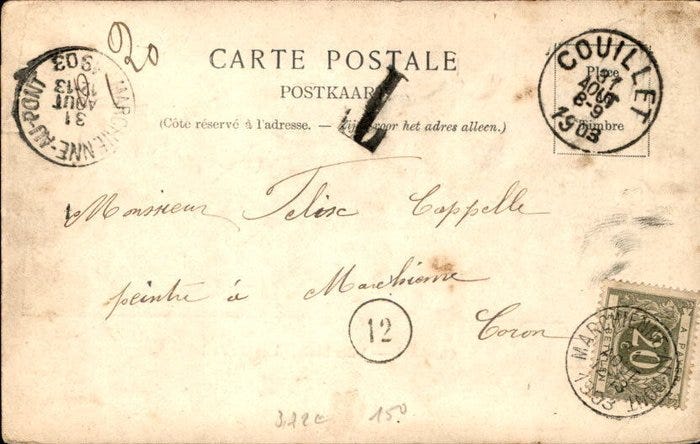 20
CARTE POSTALE
POSTKAART
(Côté réservé à l'adresse. — Zijde voor het adres alleen.)
Place
Timbre
COUILLET
31
AOUT
8-9
1903
MARCHIENNE-AU-PONT
31
AOUT
13
1903
T
Monsieur Felix Cappelle
peintre à Marchienne
Coron
12
20
A PAYER
MARCHIENNE
PONT
1903
322c 150